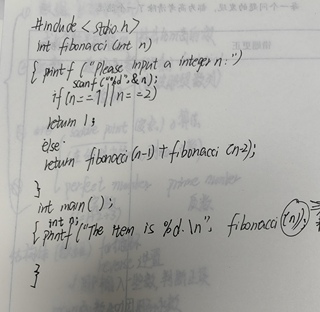 #include <stdio.h>
int fibonacci (int n)
{ printf ("Please input a integer n:")
scanf ("%d", &n);
if (n==1 || n==2)
return 1;
else
return fibonacci (n-1) + fibonacci (n-2);
}
int main ( );
int n;
{ printf ("The Item is %d.\n", fibonacci (n));
}